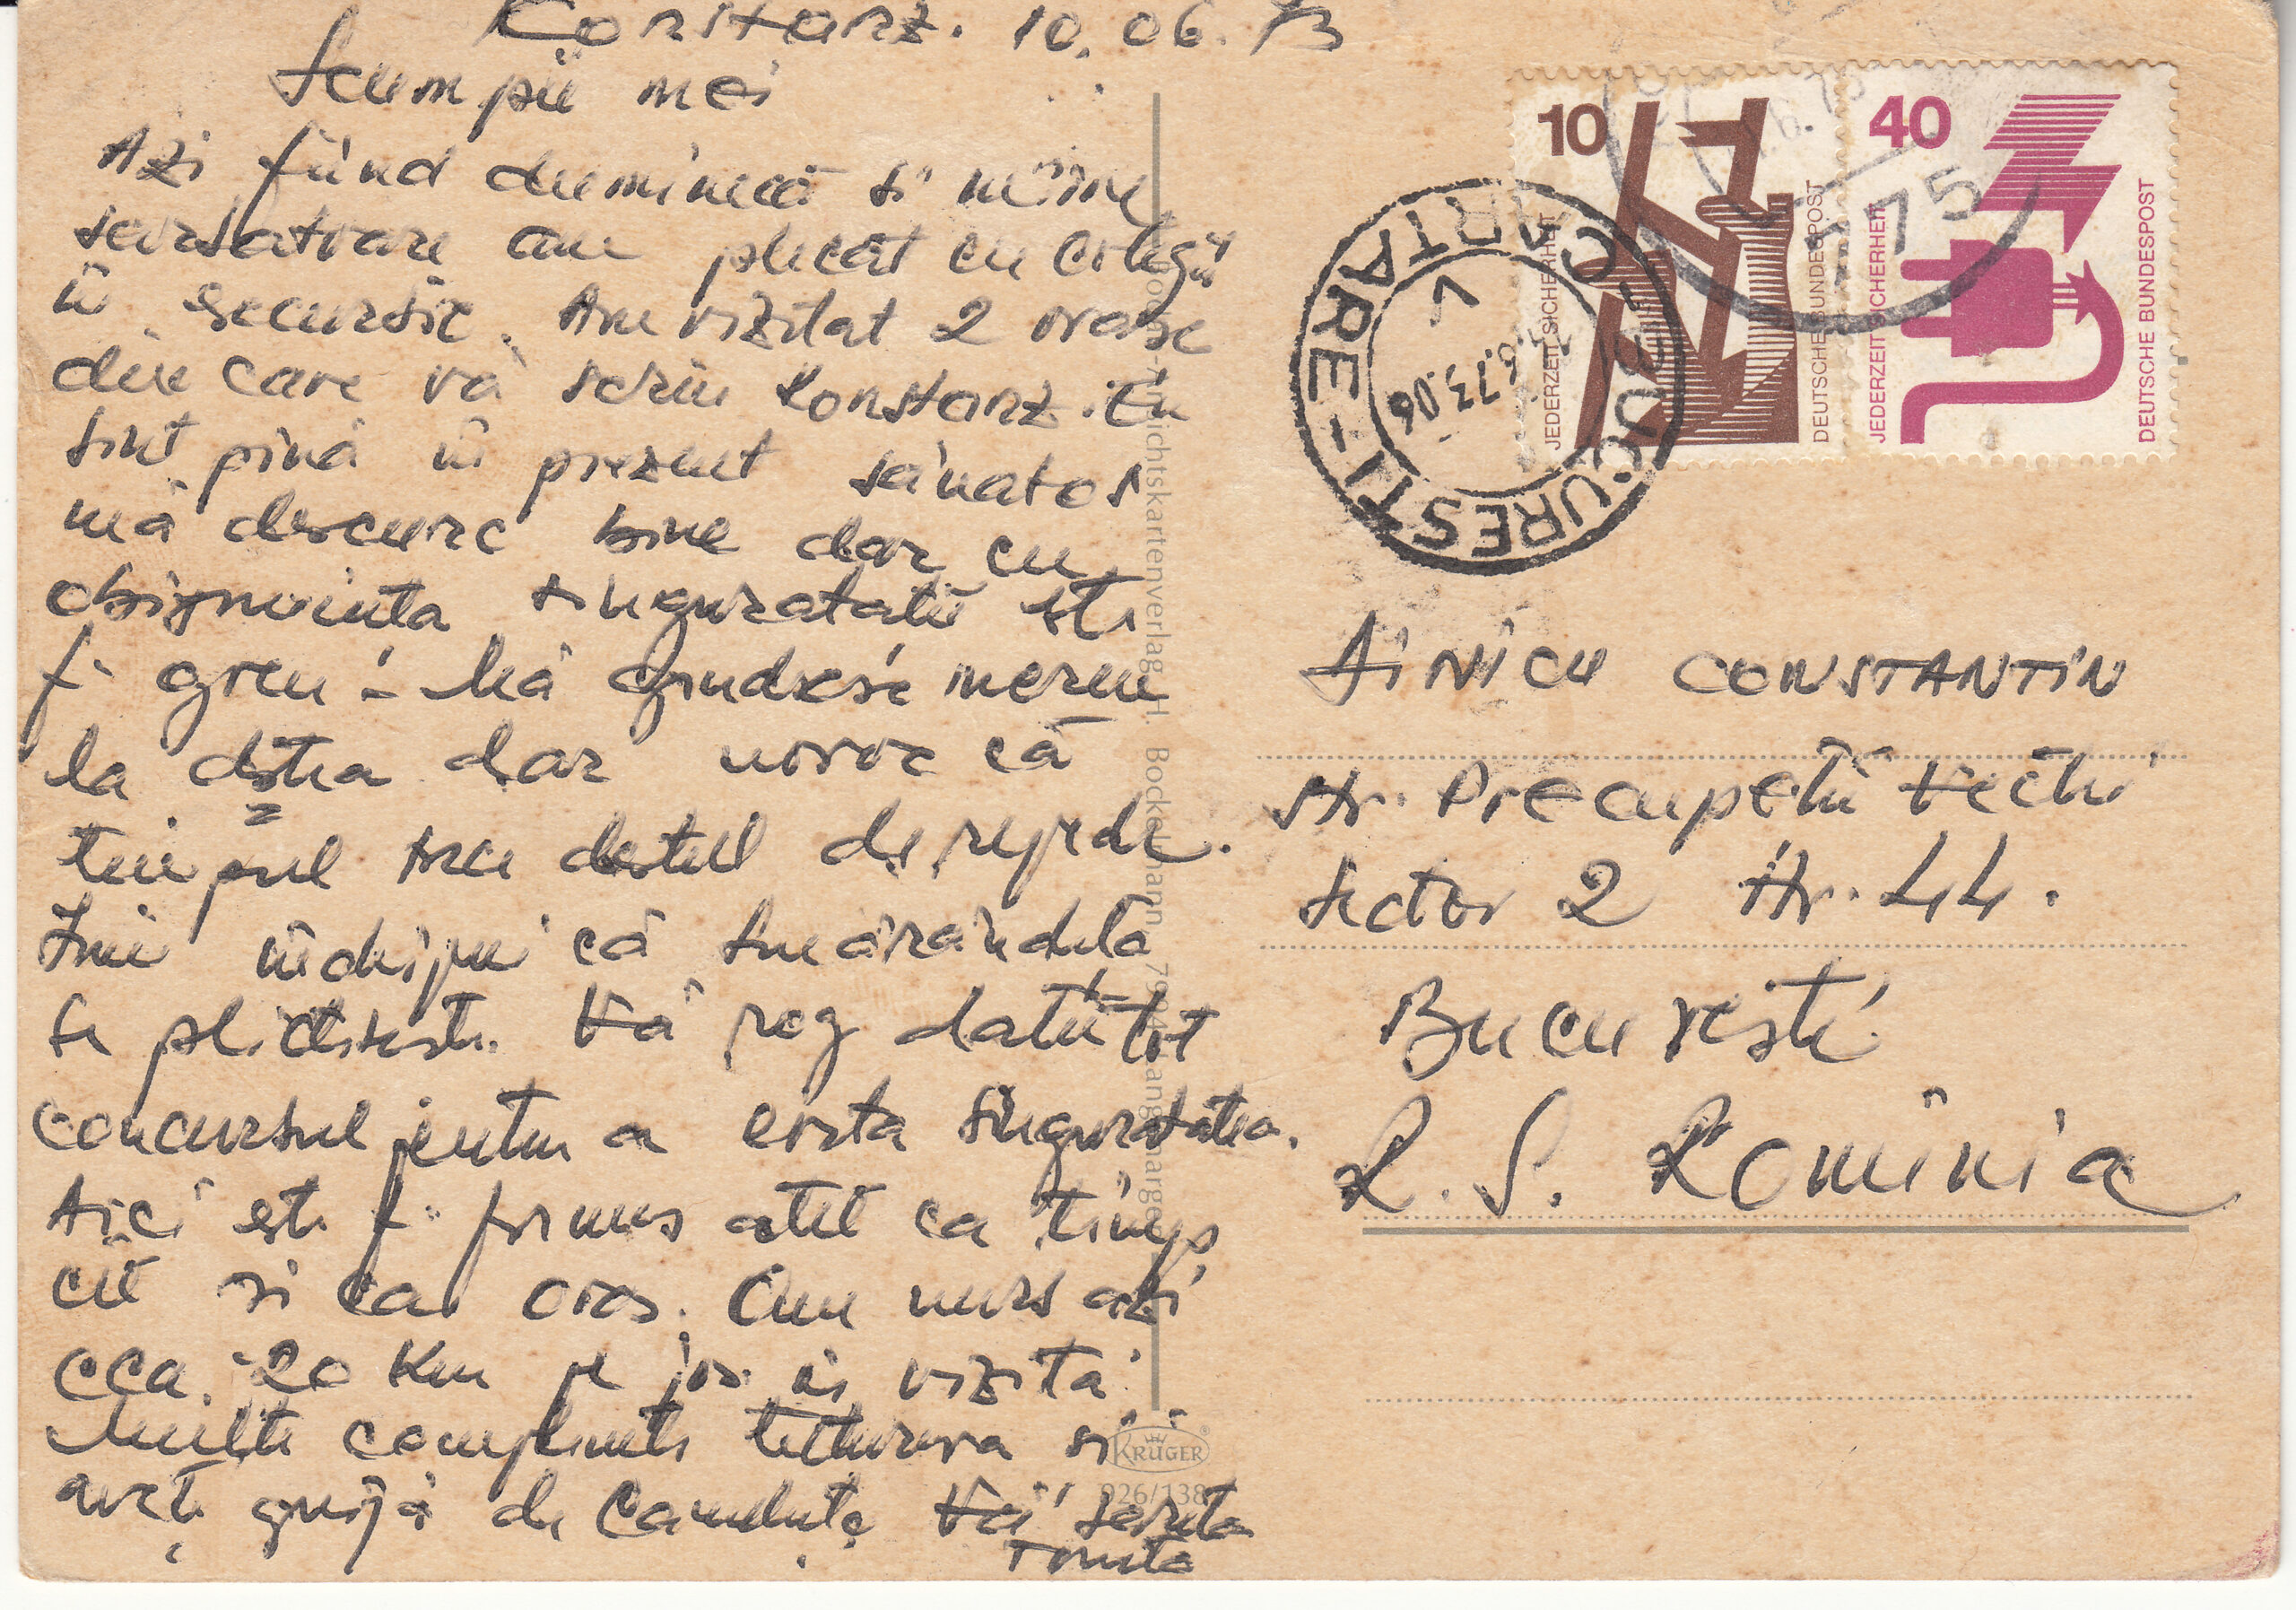 Konstanz. 10.06.73
Scumpii mei
Azi fiind duminecă si mîine
sarbatoare am plecat cu colegii
în excursie. Am vizitat 2 orase
din care vă scriu Konstanz. Eu
sint pină în prezent sănatos
mă descurc bine dar cu
obisnuinta singuratatii este
f. greu. Mă gindesc mereu
la dstra dar noroc că
timpul trece destul de repede.
Imi inchipui că Smărăndita
se plictiseste. Vă rog dati-i tot
concursul pentru a evita singuratatea.
Aici este f. frumos atît ca timp
cît si ca oras. Am mers azi
cca. 20 Km pe jos în vizita.
Multe complimente tuturora si
aveti grijă de Vă sarută
AINICU CONSTANTIN
Str. Precupetii Vechi
Sector 2 Nr. 44.
Bucuresti
R. S. Romînia
10
JEDERZEIT SICHERHEIT
DEUTSCHE BUNDESPOST
40
JEDERZEIT SICHERHEIT
DEUTSCHE BUNDESPOST
BUCURESTI
CARTARE
73.06
75
Ansichtskartenverlag H. Bockelmann
KRÜGER
926/138